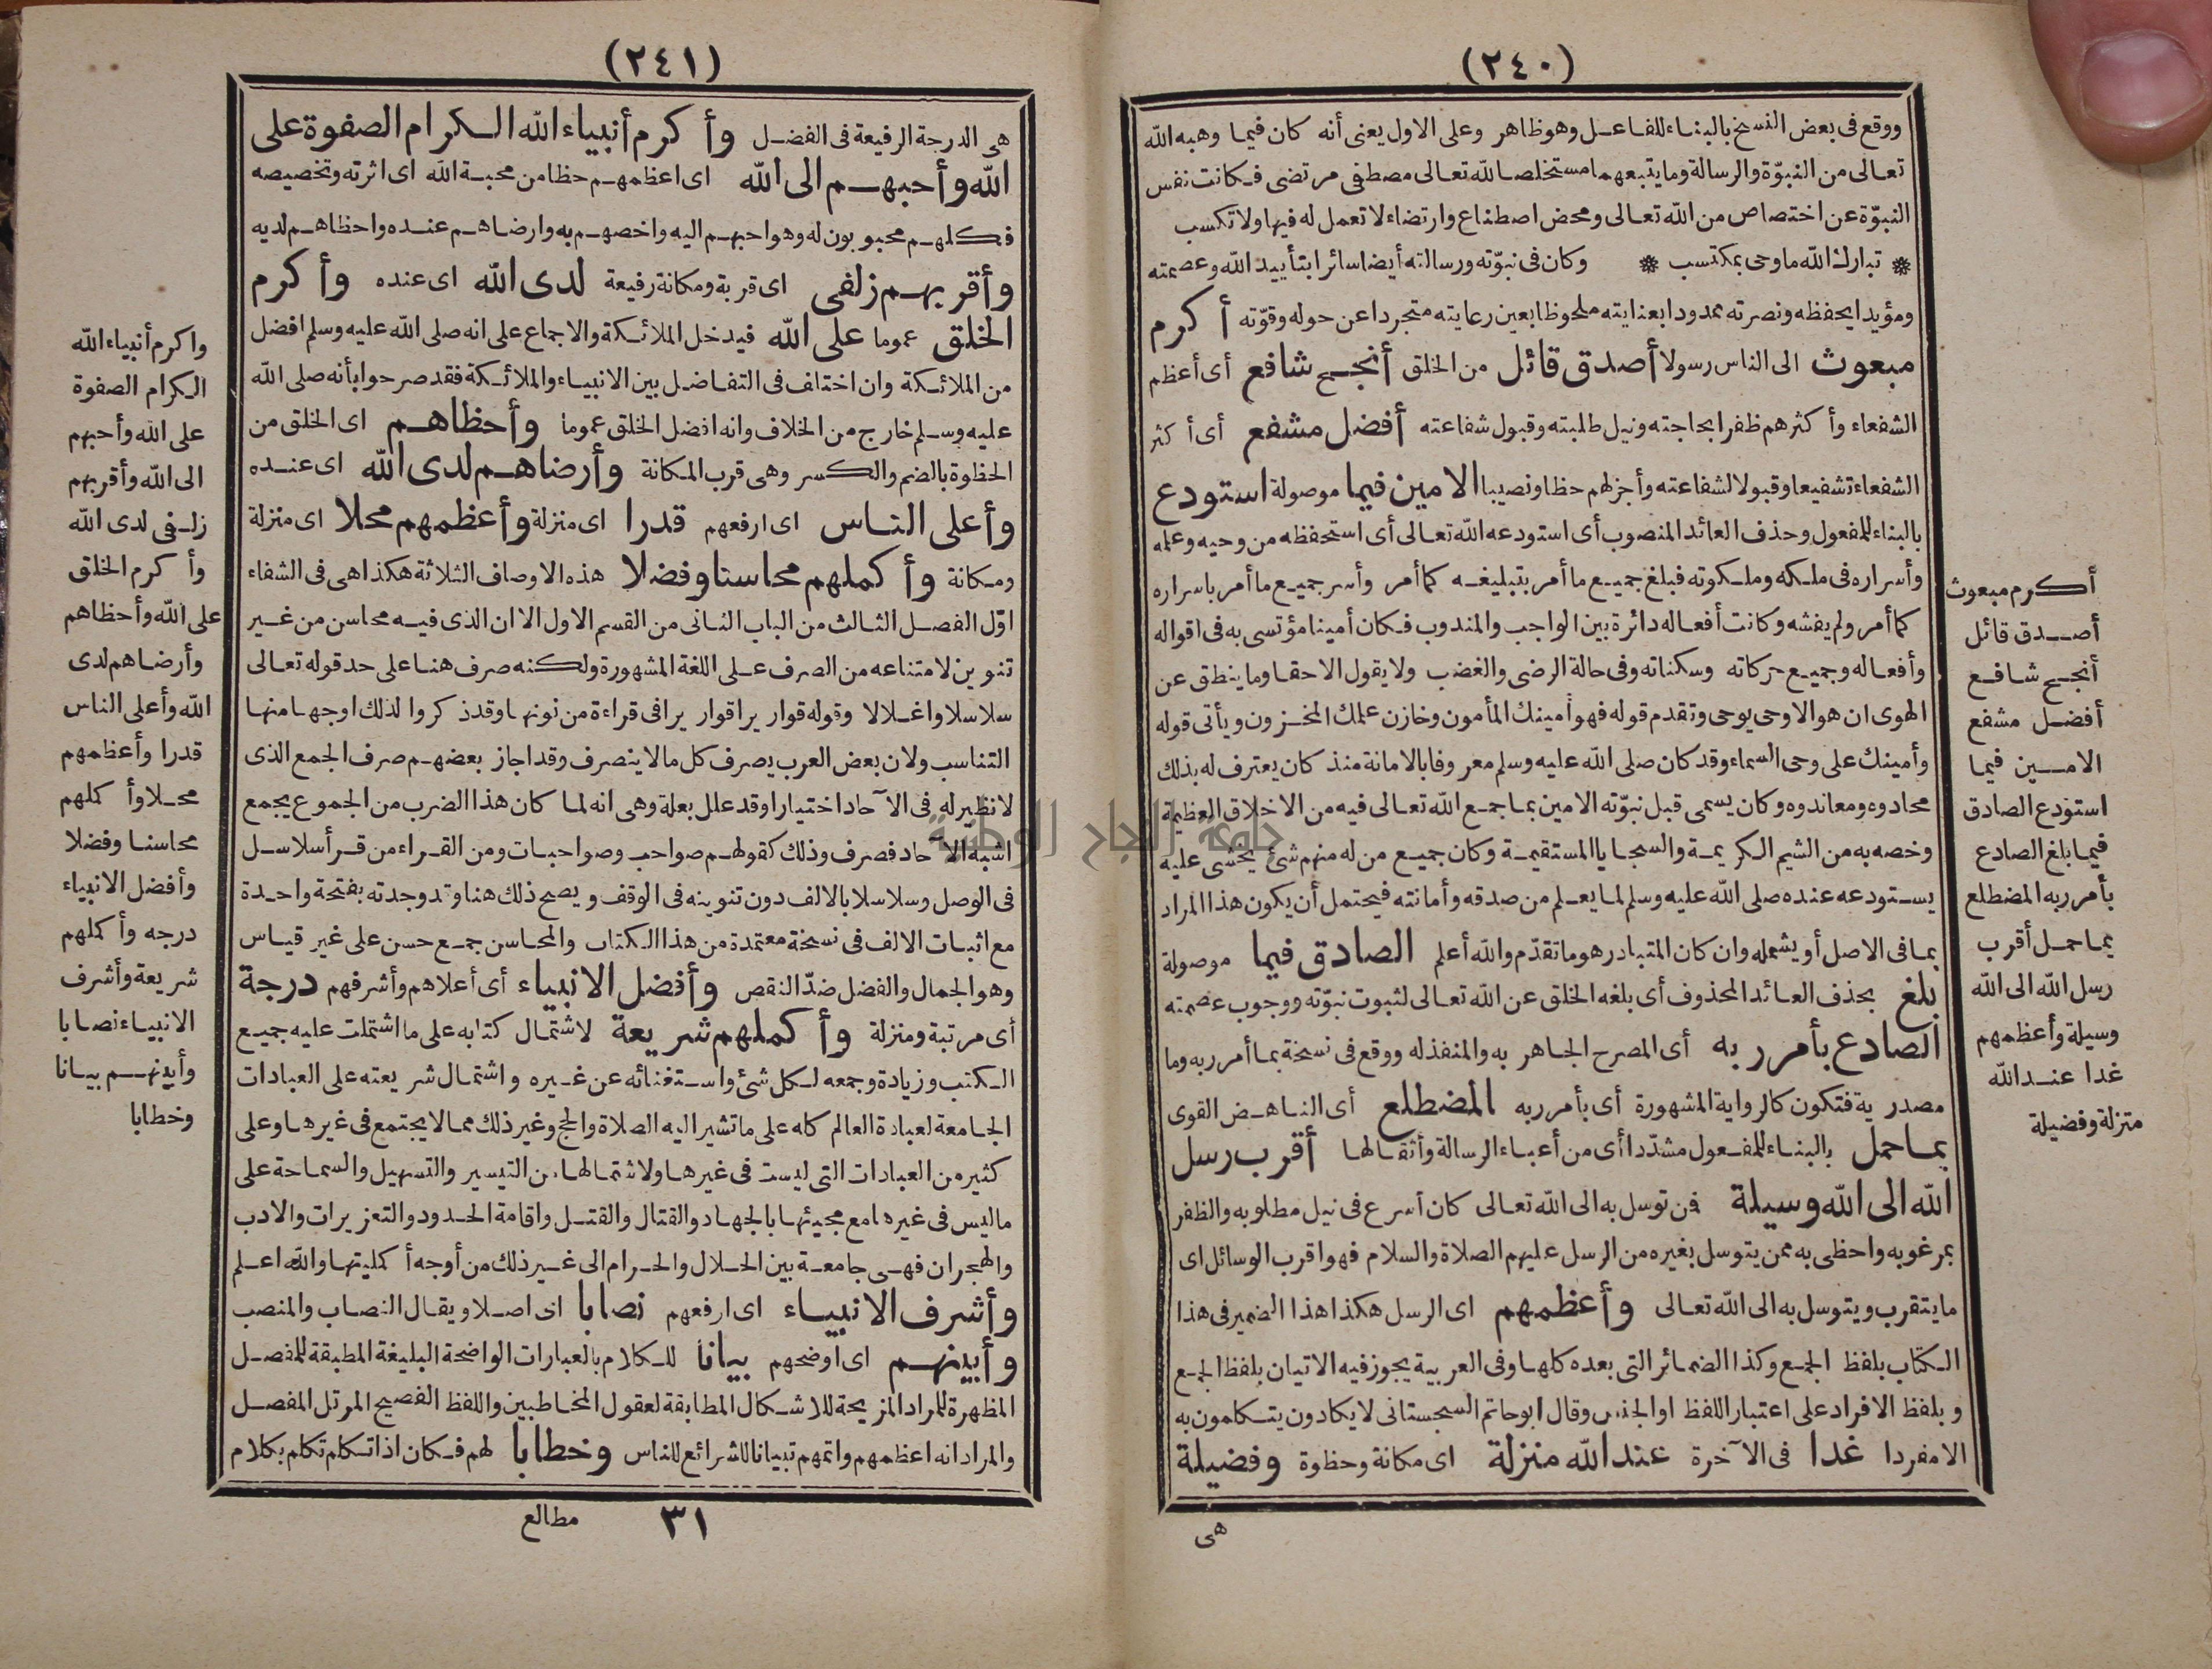 (٢٤٠)
ووقع فى بعض النسخ بالبناء للفاعل وهو ظاهر وعلى الاول يعنى أنه كان فيما وهبه الله
تعالى من النبوّة والرسالة وما يتبعهما مستخلصا لله تعالى مصطفى مرتضى فكانت نفس
النبوّة عن اختصاص من الله تعالى ومحض اصطناع وارتضاء لا تعمل له فيها ولا تكسب
* تبارك الله ما وحى بمكتسب * وكان فى نبوّته ورسالته أيضا سائرا بتأييد الله وعصمته
ومؤيدا بحفظه ونصرته ممدودا بعنايته ملحوظا بعين رعايته متجردا عن حوله وقوّته أكرم
مبعوث الى الناس رسولا أصدق قائل من الخلق أنجح شافع أى أعظم
الشفعاء وأكثرهم ظفرا بحاجته ونيل طلبته وقبول شفاعته أفضل مشفع أى أكثر
الشفعاء تشفيعا وقبولا لشفاعته وأجزلهم حظا ونصيبا الامين فيما موصولة استودع
بالبناء للمفعول وحذف العائد المنصوب أى استودعه الله تعالى أى استحفظه من وحيه وعلمه
وأسراره فى ملكه وملكوته فبلغ جميع ما أمر بتبليغه كما أمر وأسر جميع ما أمر باسراره
كما أمر ولم يفشه وكانت أفعاله دائرة بين الواجب والمندوب فكان أمينا مؤتسى به فى اقواله
وأفعاله وجميع حركاته وسكناته وفى حالة الرضى والغضب ولا يقول الا حقا وما ينطق عن
الهوى ان هو الا وحى يوحى وتقدم قوله فهو أمينك المأمون وخازن علمك المخزون ويأتى قوله
وأمينك على وحى السماء وقد كان صلى الله عليه وسلم معروفا بالامانة منذ كان يعترف له بذلك
محادوه ومعاندوه وكان يسمى قبل نبوّته الامين بما جمع الله تعالى فيه من الاخلاق العظيمة
وخصه به من الشيم الكريمة والسجايا المستقيمة وكان جميع من له منهم شئ يخشى عليه
يستودعه عنده صلى الله عليه وسلم لما يعلم من صدقه وأمانته فيحتمل أن يكون هذا المراد
بما فى الاصل أو يشمله وان كان المتبادر هو ما تقدّم والله أعلم الصادق فيما موصولة
بلغ بحذف العائد المحذوف أى بلغه الخلق عن الله تعالى لثبوت نبوّته ووجوب عصمته
الصادع بأمر ربه أى المصرح الجاهر به والمنفذ له ووقع فى نسخة بما أمر ربه وما
مصدرية فتكون كالرواية المشهورة أى بأمر ربه المضطلع أى الناهض القوى
بما حمل بالبناء للمفعول مشدّدا أى من أعباء الرسالة وأثقالها أقرب رسل
الله الى الله وسيلة فمن توسل به الى الله تعالى كان أسرع فى نيل مطلوبه والظفر
بمرغوبه واحظى به ممن يتوسل بغيره من الرسل عليهم الصلاة والسلام فهو اقرب الوسائل اى
ما يتقرب ويتوسل به الى الله تعالى وأعظمهم اى الرسل هكذا هذا الضمير فى هذا
الكتاب بلفظ الجمع وكذا الضمائر التى بعده كلها وفى العربية يجوز فيه الاتيان بلفظ الجمع
وبلفظ الافراد على اعتبار اللفظ او الجنس وقال ابو حاتم السجستانى لا يكادون يتكلمون به
الا مفردا غدا فى الآخرة عند الله منزلة اى مكانة وحظوة وفضيلة
هى
أكرم مبعوث
أصدق قائل
أنجح شافع
أفضل مشفع
الامين فيما
استودع الصادق
فيما بلغ الصادع
بأمر ربه المضطلع
بما حمل أقرب
رسل الله الى الله
وسيلة وأعظمهم
غدا عند الله
منزلة وفضيلة
(٢٤١)
هى الدرجة الرفيعة فى الفضل وأكرم أنبياء الله الكرام الصفوة على
الله وأحبهم الى الله اى اعظمهم حظا من محبة الله اى اثرته وتخصيصه
فكلهم محبوبون له وهو احبهم اليه واخصهم به وارضاهم عنده واحظاهم لديه
وأقربهم زلفى اى قربة ومكانة رفيعة لدى الله اى عنده وأكرم
الخلق عموما على الله فيدخل الملائكة والاجماع على انه صلى الله عليه وسلم افضل
من الملائكة وان اختلف فى التفاضل بين الانبياء والملائكة فقد صرحوا بأنه صلى الله
عليه وسلم خارج من الخلاف وانه افضل الخلق عموما وأحظاهم اى الخلق من
الحظوة بالضم والكسر وهى قرب المكانة وأرضاهم لدى الله اى عنده
وأعلى الناس اى ارفعهم قدرا اى منزلة وأعظمهم محلا اى منزلة
ومكانة وأكملهم محاسنا وفضلا هذه الاوصاف الثلاثة هكذا هى فى الشفاء
اوّل الفصل الثالث من الباب الثانى من القسم الاول الا ان الذى فيه محاسن من غير
تنوين لامتناعه من الصرف على اللغة المشهورة ولكنه صرف هنا على حد قوله تعالى
سلاسلا واغلالا وقوله قواريرا قواريرا فى قراءة من نونها وقد ذكروا لذلك اوجها منها
التناسب ولان بعض العرب يصرف كل ما لا ينصرف وقد اجاز بعضهم صرف الجمع الذى
لا نظير له فى الآحاد اختيارا وقد علل بعلة وهى انه لما كان هذا الضرب من الجموع يجمع
اشبه الآحاد فصرف وذلك كقولهم صواحب وصواحبات ومن القراء من قرأ سلاسل
فى الوصل وسلاسلا بالالف دون تنوينه فى الوقف ويصح ذلك هنا وقد وجدته بفتحة واحدة
مع اثبات الالف فى نسخة معتمدة من هذا الكتاب والمحاسن جمع حسن على غير قياس
وهو الجمال والفضل ضدّ النقص وأفضل الانبياء أى أعلاهم وأشرفهم درجة
أى مرتبة ومنزلة وأكملهم شريعة لاشتمال كتابه على ما اشتملت عليه جميع
الكتب وزيادة وجمعه لكل شئ واستغنائه عن غيره واشتمال شريعته على العبادات
الجامعة لعبادة العالم كله على ما تشير اليه الصلاة والحج وغير ذلك مما لا يجتمع فى غيرها وعلى
كثير من العبادات التى ليست فى غيرها ولاشتمالها من التيسير والتسهيل والسماحة على
ما ليس فى غيرها مع مجيئها بالجهاد والقتال والقتل واقامة الحدود والتعزيرات والادب
والهجران فهى جامعة بين الحلال والحرام الى غير ذلك من أوجه أكمليتها والله اعلم
وأشرف الانبياء اى ارفعهم نصابا اى اصلا ويقال النصاب والمنصب
وأبينهم اى اوضحهم بيانا للكلام بالعبارات الواضحة البليغة المطبقة للمفصل
المظهرة للمراد المزيحة للاشكال المطابقة لعقول المخاطبين واللفظ الفصيح المرتل المفصل
والمراد انه اعظمهم واتمهم تبيانا للشرائع للناس وخطابا لهم فكان اذا تكلم تكلم بكلام
٣١ مطالع
واكرم أنبياء الله
الكرام الصفوة
على الله وأحبهم
الى الله وأقربهم
زلفى لدى الله
وأكرم الخلق
على الله وأحظاهم
وأرضاهم لدى
الله وأعلى الناس
قدرا وأعظمهم
محلا وأكملهم
محاسنا وفضلا
وأفضل الانبياء
درجه وأكملهم
شريعة وأشرف
الانبياء نصابا
وأبينهم بيانا
وخطابا
جامعة النجاح الوطنية